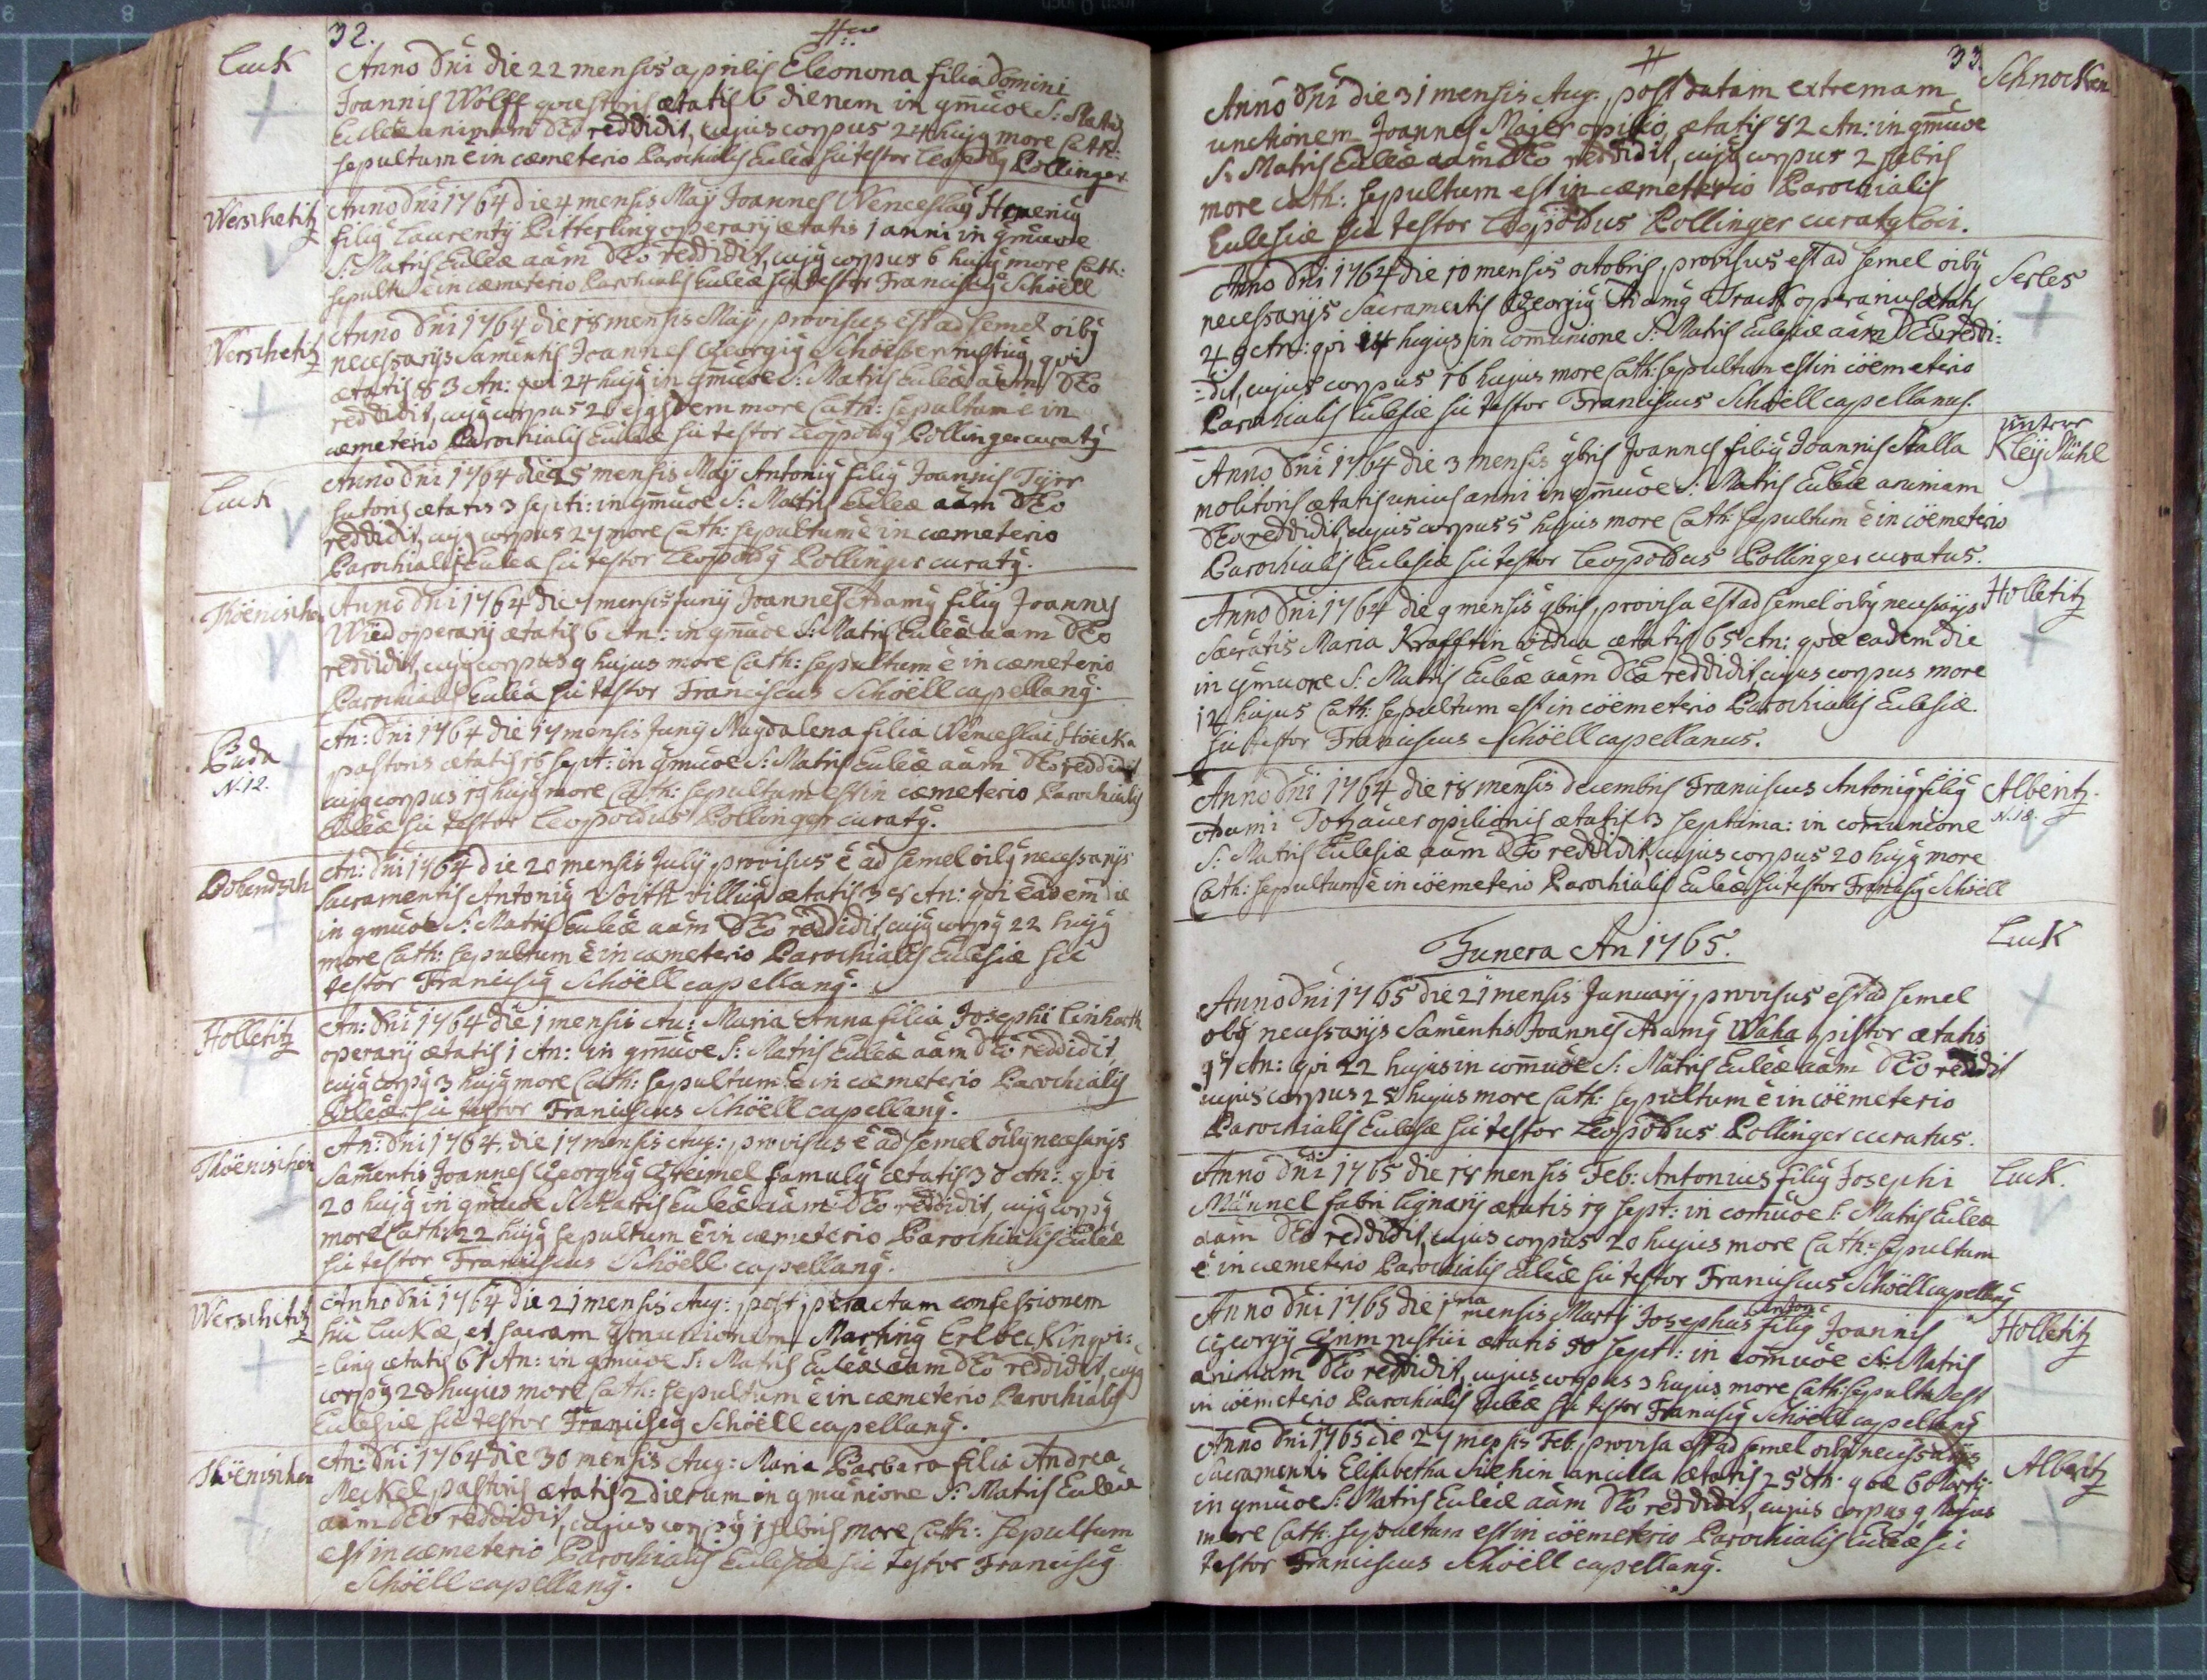 32.
Luck
Anno Dni die 22 mensis aprilis Eleonora filia Domini
Joannis Wolff quaestoris ætatis 6 dierum in gmuoe S: Matris
Eccleæ animam DEo reddidit, cujus corpus 24 hujg more Cath:
sepultum ē in cæmeterio Parochialis Eccleæ sic testor Leopoldg Pollinger
Werschetitz
Anno Dni 1764 die 4 mensis Maij Joannes Wenceslag
filig Laurentij Pitterling operarij ætatis 1 anni in gmuoe
S: Matris Eccleæ aam DEo reddidit, cujg corpus 6 hujg more Cath:
sepultū ē in cæmeterio Parochialis Eccleæ sic testor Franciscg Schöell
Werschetitz
Anno Dni 1764 die 18 mensis Maij, provisus est ad semel oibg
necessarijs Samentis Joannes Georgig rusticg, qvi
ætatis 83 An: qvi 24 hujg in gmuoe S: Matris Eccleæ aam DEo
reddidit, cujg corpus 26 ejgdem more Cath: sepultum ē in
cæmeterio Parochialis Eccleæ sic testor Leopoldg Pollinger curatg
Luck
Anno Dni 1764 die 25 mensis Maij Antonig filig Joannis Tyrr
sutoris ætatis 3 septi: in gmuoe S: Matris Eccleæ aam DEo
reddidit, cujg corpus 27 more Cath: sepultum ē in cæmeterio
Parochialis Eccleæ sic testor Leopoldg Pollinger curatg.
Thöenischen
Anno Dni 1764 die 7 mensis Junij Joannes Adamg filig Joannis
Wied operarij ætatis 6 An: in gmuoe S: Matris Eccleæ aam DEo
reddidit, cujg corpus 9 hujus more Cath: sepultum ē in cæmeterio
Parochialis Eccleæ sic testor Franciscus Schöell capellang.
Puda
N. 12.
An: Dni 1764 die 17 mensis Junij Magdalena filia Wenceslai
pastoris ætatis 16 sept: in gmuoe S: Matris Eccleæ aam DEo reddidit
cujg corpus 19 hujg more Cath: sepultum est in cæmeterio Parochialis
Eccleæ sic testor Leopoldus Pollinger curatg.
Dobendsch
An: Dni 1764 die 20 mensis Julij, provisus ē ad semel oibg necessarijs
Sacramentis Antonig Voitt villicg ætatis 38 An: qvi eadem die
in gmuoe S: Matris Eccleæ aam DEo reddidit, cujg corpg 22 hujg
more Cath: sepultum ē in cæmeterio Parochialis Ecclesiæ sic
testor Franciscg Schöell capellang.
Holletitz
An: Dni 1764 die 1 mensis Au: Maria Anna filia Josephi Linharth
operarij ætatis 1 An: in gmuoe S: Matris Eccleæ aam DEo reddidit
cujg corpg 3 hujg more Cath: sepultum ē in cæmeterio Parochialis
Eccleæ sic testor Franciscus Schöell capellang.
Thöenischen
An: Dni 1764. die 17 mensis Aug:, provisus ē ad semel oibg necesarijs
Samentis Joannes Georgig Greimel famulg ætatis 38 An: qvi
20 hujg in gmuoe S: Matris Eccleæ aam DEo reddidit, cujg corpg
more Cath: 22 hujg sepultum ē in cæmeterio Parochialis Eccleæ
sic testor Franciscus Schöell capellang.
Werschetitz
Anno Dni 1764 die 21 mensis Aug: post peractam confessionem
hic Luckæ, et sacram gmunionem Marting Erlbeck inqvi=
=ling ætatis 67 An: in gmuoe S: Matris Eccleæ aam DEo reddidit, cujg
corpg 28 hujus more Cath: sepultum ē in cæmeterio Parochialis
Ecclesiæ sic testor Franciscg Schöell capellang.
Thöenischen
An: Dni 1764 die 30 mensis Aug: Maria Barbara filia Andreæ
Meckel pastoris ætatis 2 dierum in gmunione S: Matris Eccleæ
aam DEo reddidit, cujus corpg 1 7bris more Cath: sepultum
est in cæmeterio Parochialis Ecclesiæ sic testor Franciscg
Schöell capellang.
33.
Schnocken
Anno Dni die 31 mensis Aug: post datam extremam
unctionem Joannes Majer opilio, ætatis 82 An: in gmuoe
S: Matris Eccleæ aam DEo reddidit, cujg corpus 2 7bris
more Cath: sepultum est in cæmeterio Parochialis
Ecclesiæ sic testor Leopoldus Pollinger curatg loci.
Serles
Anno Dni 1764 die 10 mensis octobris, provisus est ad semel oibg
necessarijs Sacramentis Georgig Adamg Track operarius ætatis
49 An: qvi 14 hujus in communione S: Matris Ecclesiæ aam DEo reddi=
=dit, cujus corpus 16 hujus more Cath: sepultum est in cöemeterio
Parochialis Ecclesiæ sic testor Franciscus Schöell capellanus.
untere
Kleij Mühl
Anno Dni 1764 die 3 mensis 9bris Joannes filig Joannis Stalla
molitoris ætatis unius anni in gmuoe S: Matris Eccleæ animam
DEo reddidit, cujus corpus 5 hujus more Cath: sepultum ē in cöemeterio
Parochialis Ecclesiæ sic testor Leopoldus Pollinger curatus.
Holletitz
Anno Dni 1764 die 9 mensis 9bris, provisa est ad semel oibg necessarijs
Sacratis Maria Krafftin vidua ætatis 65 An: qvæ eadem die
in gmuone S: Matris Eccleæ aam DEo reddidit, cujus corpus more
12 hujus Cath: sepultum est in cöemeterio Parochialis Ecclesiæ.
sic testor Franciscus Schöell capellanus.
Alberitz.
N. 18.
Anno Dni 1764 die 18 mensis decembris Franciscus Antonig filig
Adami Totzauer opilionis ætatis 3 septima: in comunione
S: Matris Ecclesiæ aam DEo reddidit, cujus corpus 20 hujg more
Cath: sepultum ē in cöemeterio Parochialis Eccleæ sic testor Franciscg Schöell
Funera An 1765.
Luck
Anno Dni 1765 die 21 mensis Januarij, provisus est ad semel
oibg necessarijs Samentis Joannes Adamg Waha pistor ætatis
97 An: qvi 22 hujus in comuoe S: Matris Eccleæ aam DEo reddidit
cujus corpus 25 hujus more Cath: sepultum ē in cöemeterio
Parochialis Ecclesiæ sic testor Leopoldus Pollinger curatus.
Luck.
Anno Dni 1765 die 18 mensis Feb: Antonius filig Josephi
Männel fabri lignarij ætatis 19 sept: in comuoe S: Matris Eccleæ
aam DEo reddidit, cujus corpus 20 hujus more Cath: sepultum
ē in cæmeterio Parochialis Eccleæ sic testor Franciscus Schöell capellang
Holletitz
Anno Dni 1765 die 1ma mensis Martij Josephus Anton: filig Joannis
Georgij rustici ætatis 30 sept: in comuoe S: Matris
animam DEo reddidit, cujus corpus 3 hujus more Cath: sepultū est
in cöemeterio Parochialis Eccleæ sic testor Franciscg Schöell capellang
Alberitz
Anno Dni 1765 die 27 mensis Feb: provisa est ad semel oibg necessarijs
Sacramentis Elisabetha ancilla ætatis 25 An: qvæ 6 Martij
in gmuoe S: Matris Eccleæ aam DEo reddidit, cujus corpus 9 hujus
more Cath: sepultum est in cöemeterio Parochialis Eccleæ sic
testor Franciscus Schöell capellang.